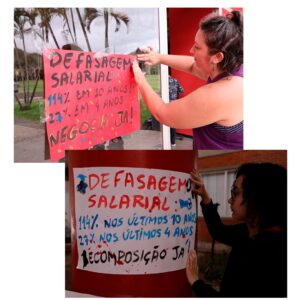 DEFASAGEM
SALARIAL
114% EM 10 ANOS!
27% EM 4 ANOS
NEGOCIA JÁ!
DEFASAGEM
SALARIAL:
114% NOS ÚLTIMOS 10 ANOS
27% NOS ÚLTIMOS 4 ANOS
RECOMPOSIÇÃO JÁ!